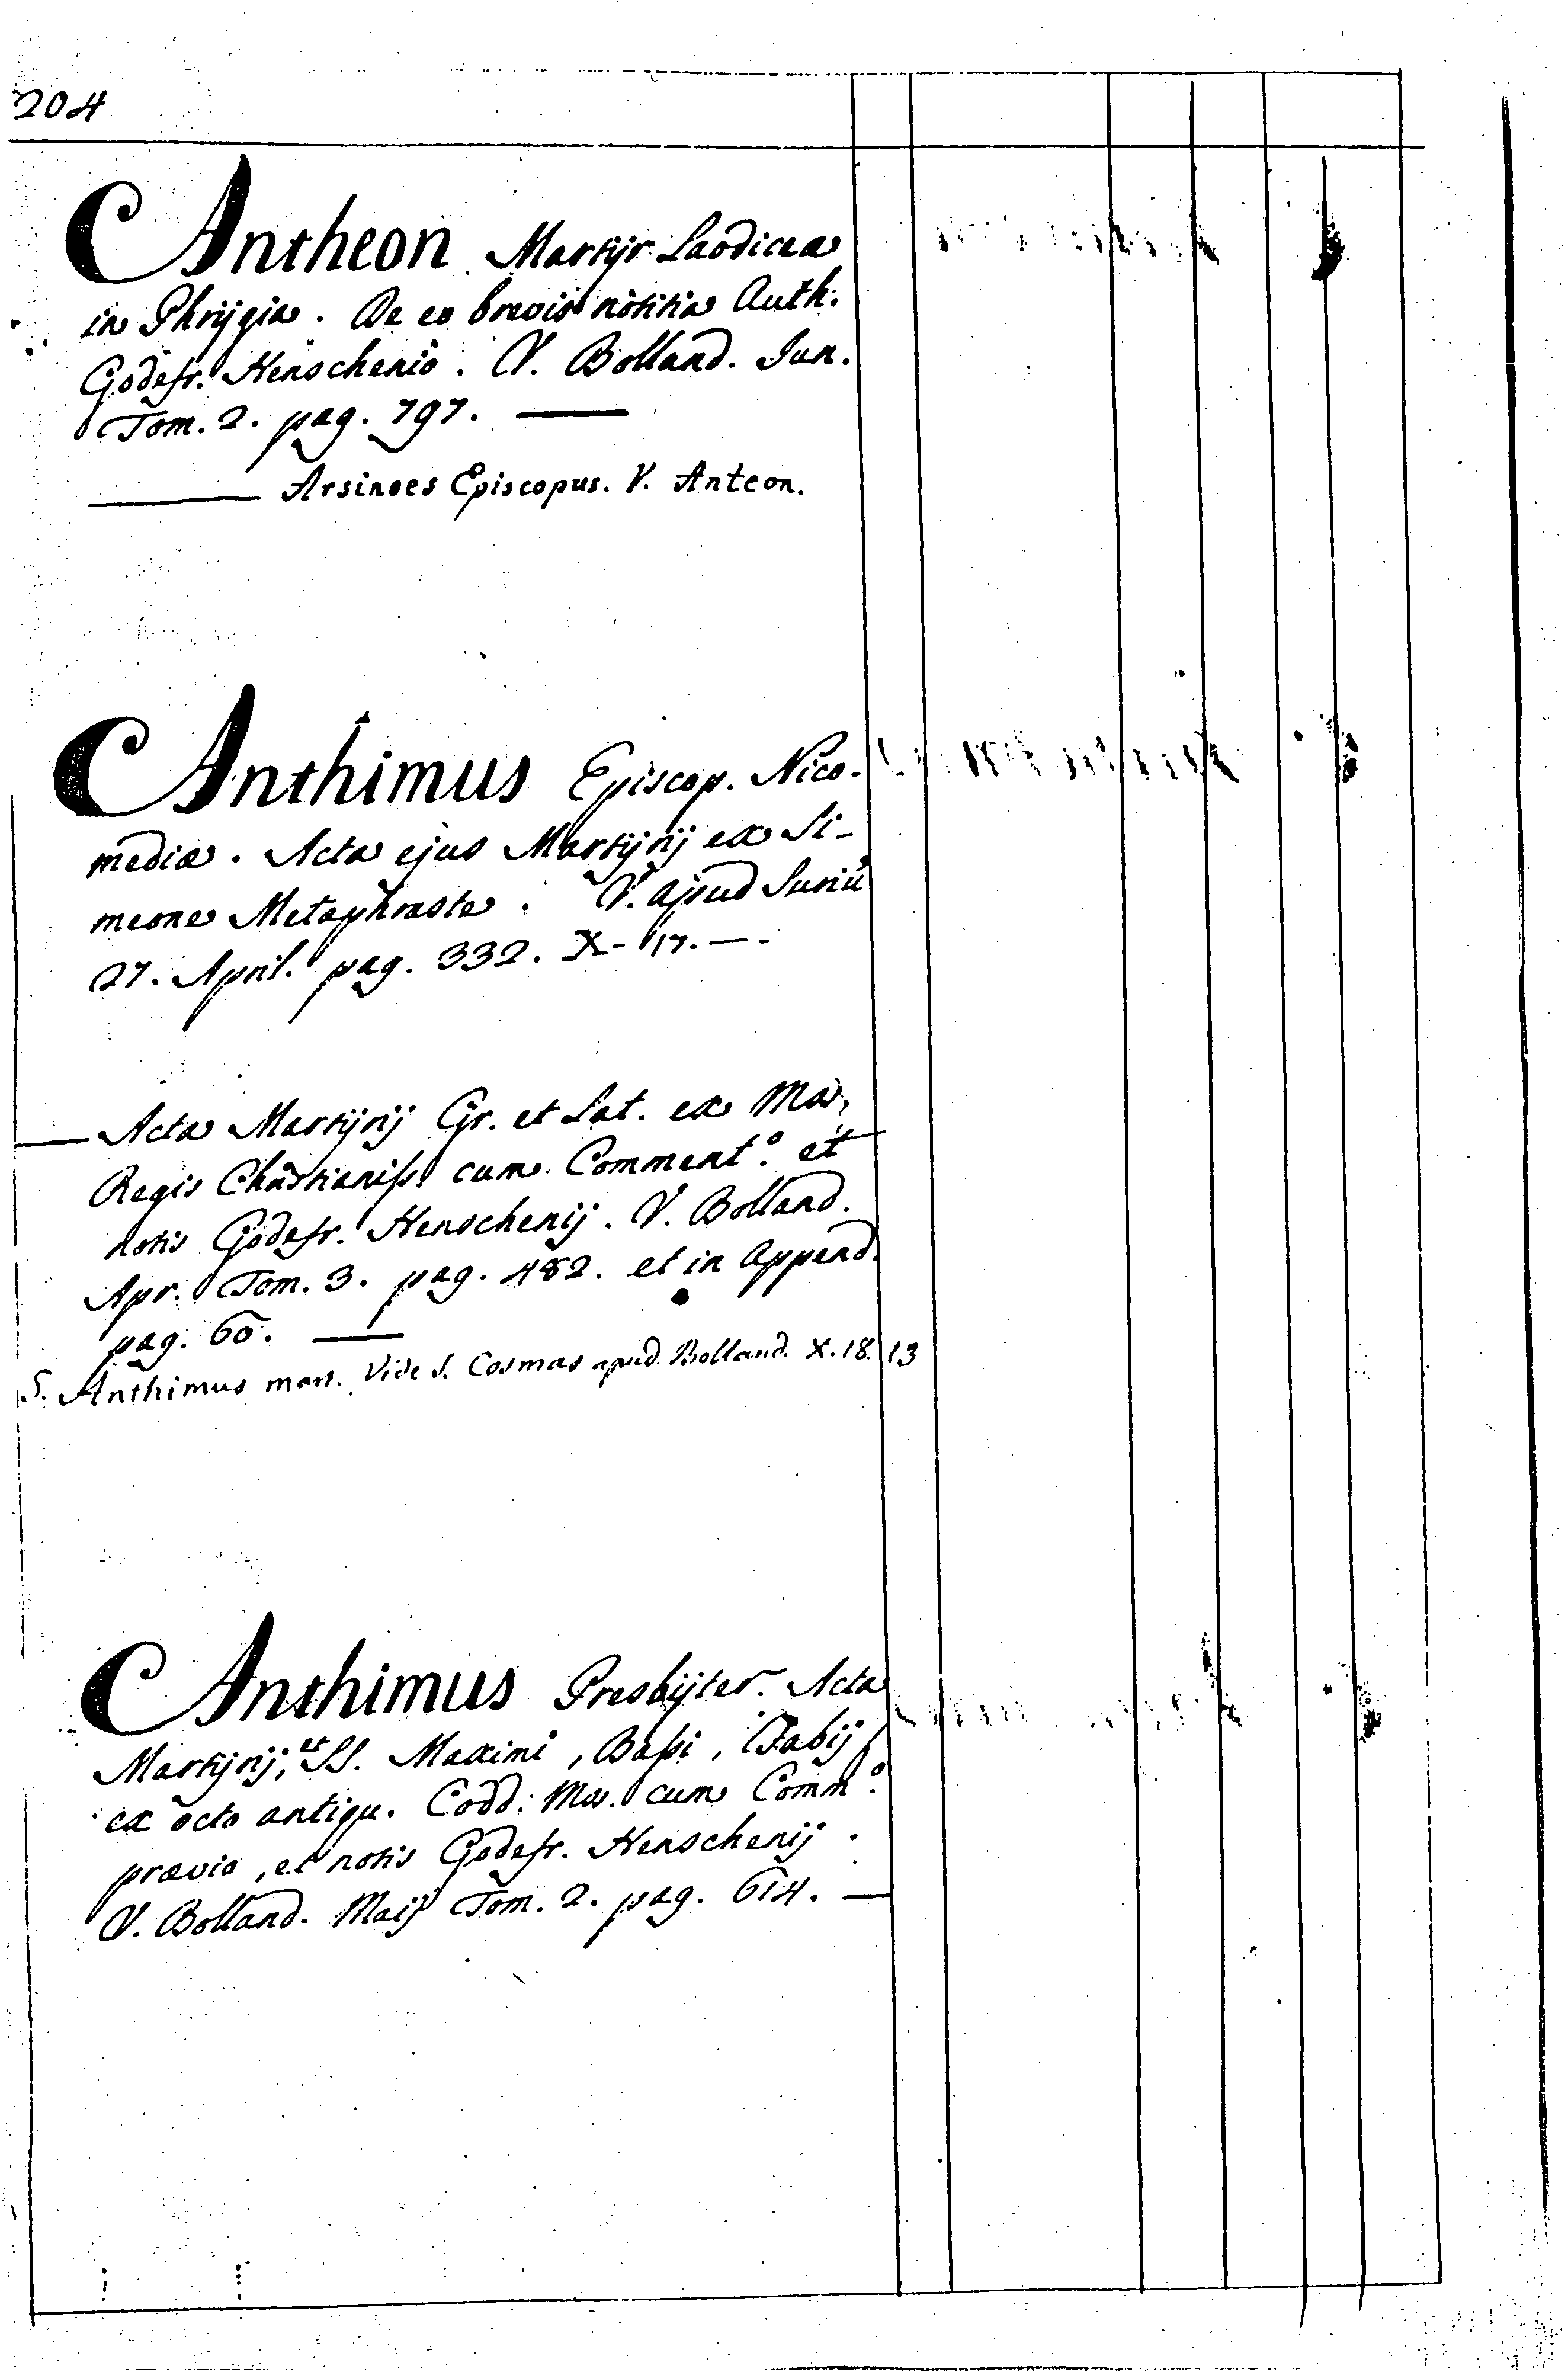 204
Antheon Martyr Laodiceæ
in Phrÿgia. De eo brevis notitia Auth.
Godefr. Henschenio. V. Bolland. Jun.
Tom. 2. pag. 797. —
— Arsinoes Episcopus. V. Anteon.
Anthimus Episcop. Nico-
mediæ. Acta ejus Martÿrij ex Si-
meone Metaphraste. V. apud Suriũ
27. April. pag. 332. X- 17. —.
— Acta Martÿrij Gr. et Lat. ex Ms.
Regis Christianiss. cum Comment.º et
notis Godefr. Henschenij. V. Bolland.
Apr. Tom. 3. pag. 482. et in Append.
pag. 60. —
S. Anthimus mart. Vide S. Cosmas apud Bolland. X. 18. 13
Anthimus Presbÿter. Acta
Martÿrij, et SS. Maximi, Bassi, Fabij
ex octo antiqu. Codd. Mss. cum Comm.º
prævio, et notis Godefr. Henschenij.
V. Bolland. Maij Tom. 2. pag. 614. —